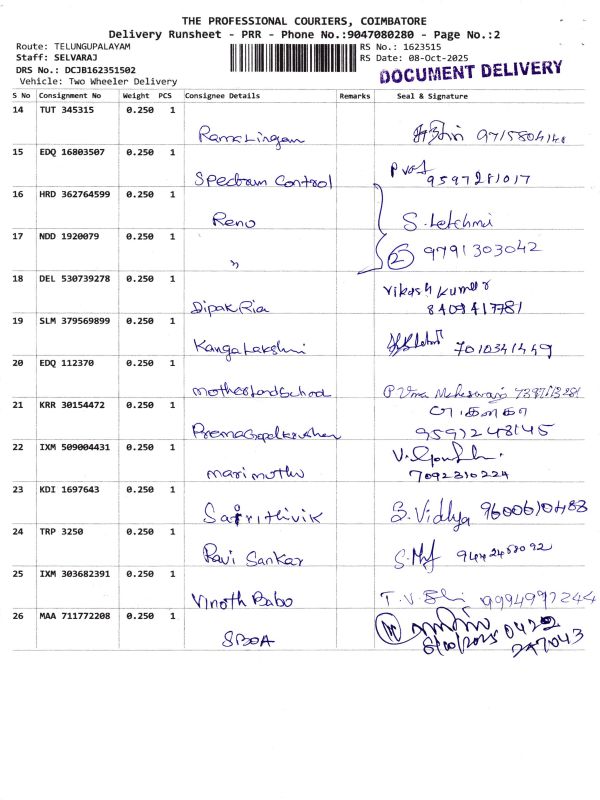 THE PROFESSIONAL COURIERS, COIMBATORE
Delivery Runsheet - PRR - Phone No.:9047080280 - Page No.:2
Route: TELUNGUPALAYAM RS No.: 1623515
Staff: SELVARAJ RS Date: 08-Oct-2025
DRS No.: DCJB162351502
Vehicle: Two Wheeler Delivery
DOCUMENT DELIVERY
S No Consignment No Weight PCS Consignee Details Remarks Seal & Signature
14 TUT 345315 0.250 1
RamaLingam
15 EDQ 16803507 0.250 1
Spectrum Control 9597281017
16 HRD 362764599 0.250 1
Renu S. Letchmi
17 NDD 1920079 0.250 1
" 2 9791303042
18 DEL 530739278 0.250 1
Vikash Kumar
Dipak Ria 8409417781
19 SLM 379569899 0.250 1
KangaLakshmi 7010341449
20 EDQ 112370 0.250 1
motherlandSchool P Uma Maheswari
21 KRR 30154472 0.250 1
PremaGopalkrushnan
22 IXM 509004431 0.250 1
marimuthu 7092310224
23 KDI 1697643 0.250 1
Sairithivik S. Vidhya 9600610483
24 TRP 3250 0.250 1
Ravi Sankar
25 IXM 303682391 0.250 1
Vinoth Babo 9994997244
26 MAA 711772208 0.250 1
SBOA 0422
247043